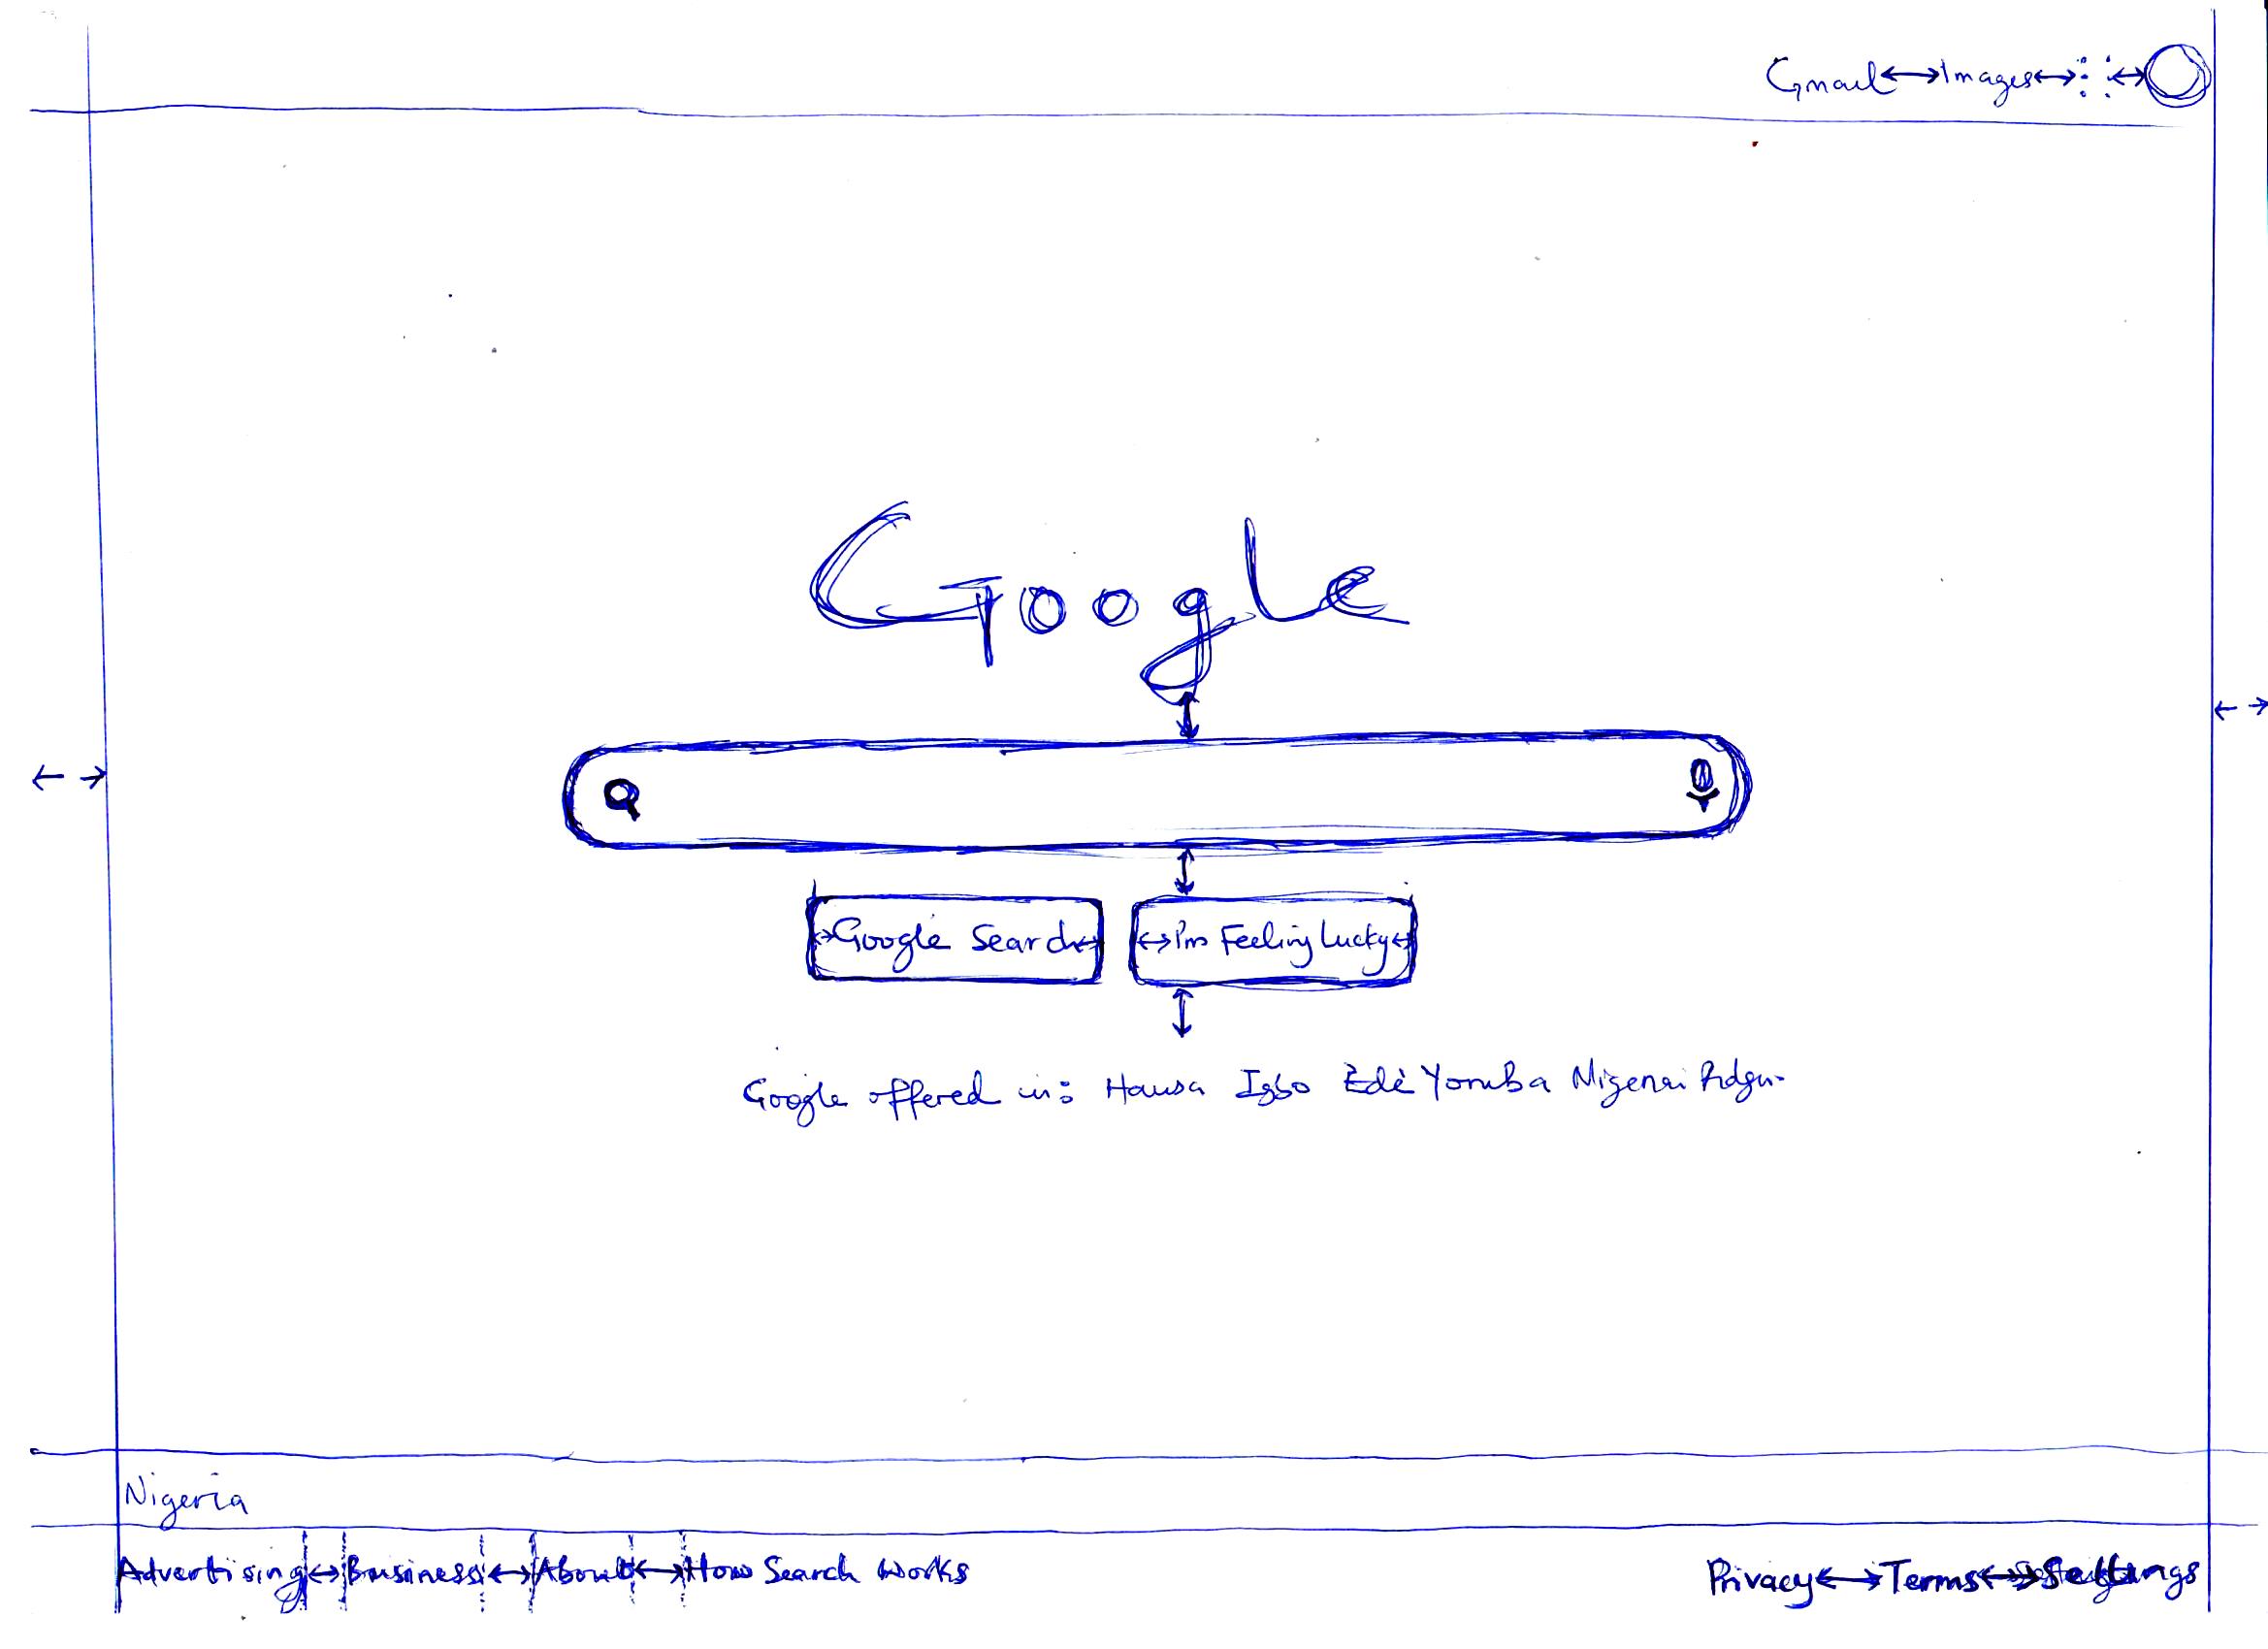 Gmail Images
Google
Google Search I'm Feeling Lucky
Google offered in: Hausa Igbo Èdè Yoruba
Nigeria
Advertising Business About How Search Works
Privacy Terms Settings